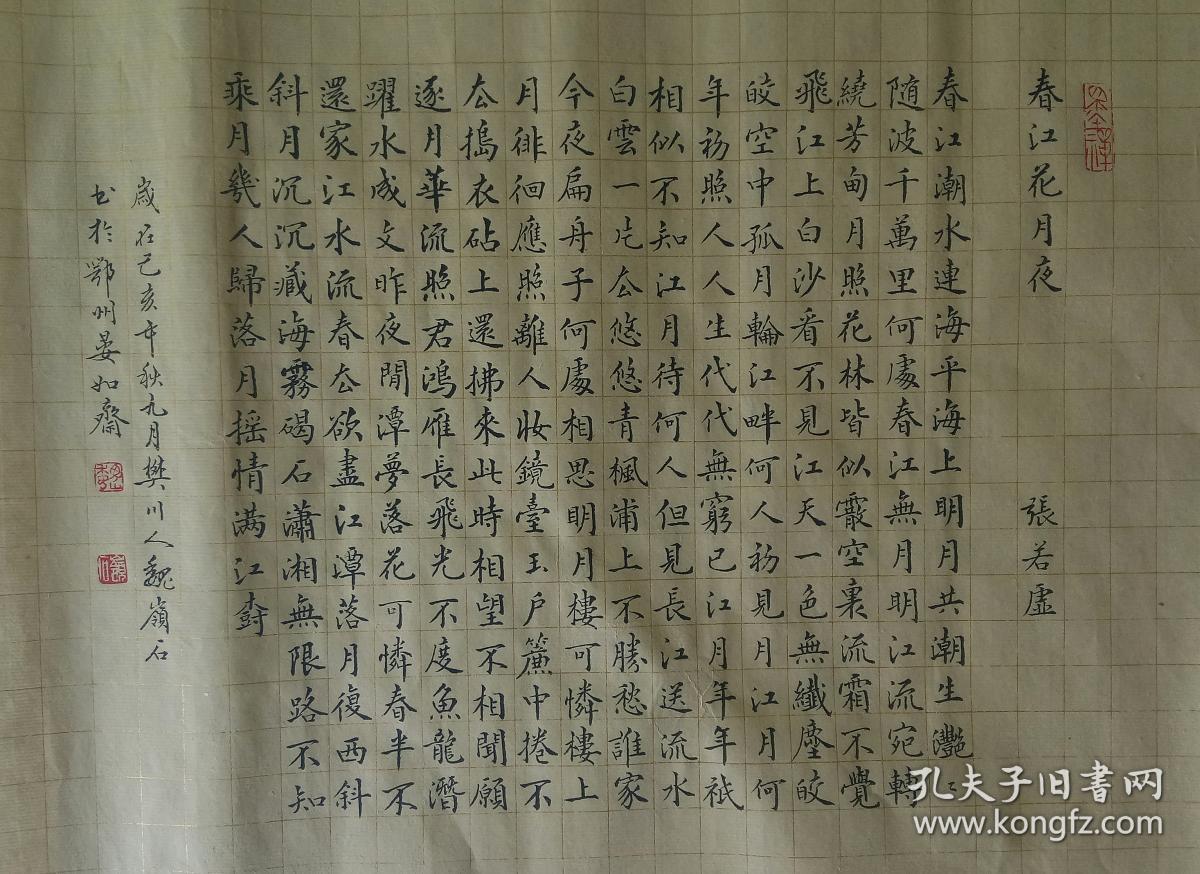 春江花月夜 張若虛
春江潮水連海平海上明月共潮生灩〻
随波千萬里何處春江無月明江流宛轉
繞芳甸月照花林皆似霰空裏流霜不覺
飛江上白沙看不見江天一色無纖塵皎
皎空中孤月輪江畔何人初見月江月何
年初照人人生代代無窮已江月年年祇
相似不知江月待何人但見長江送流水
白雲一片去悠悠青楓浦上不勝愁誰家
今夜扁舟子何處相思明月樓可憐樓上
月徘徊應照離人妝鏡臺玉户簾中捲不
去搗衣砧上還拂來此時相望不相聞願
逐月華流照君鴻雁長飛光不度魚龍潛
躍水成文昨夜閒潭夢落花可憐春半不
還家江水流春去欲盡江潭落月復西斜
斜月沉沉藏海霧碣石瀟湘無限路不知
乘月幾人歸落月摇情满江樹
歲在己亥年秋九月樊川人魏嶺石
书於鄂州晏如齋
孔夫子旧书网
www.kongfz.com